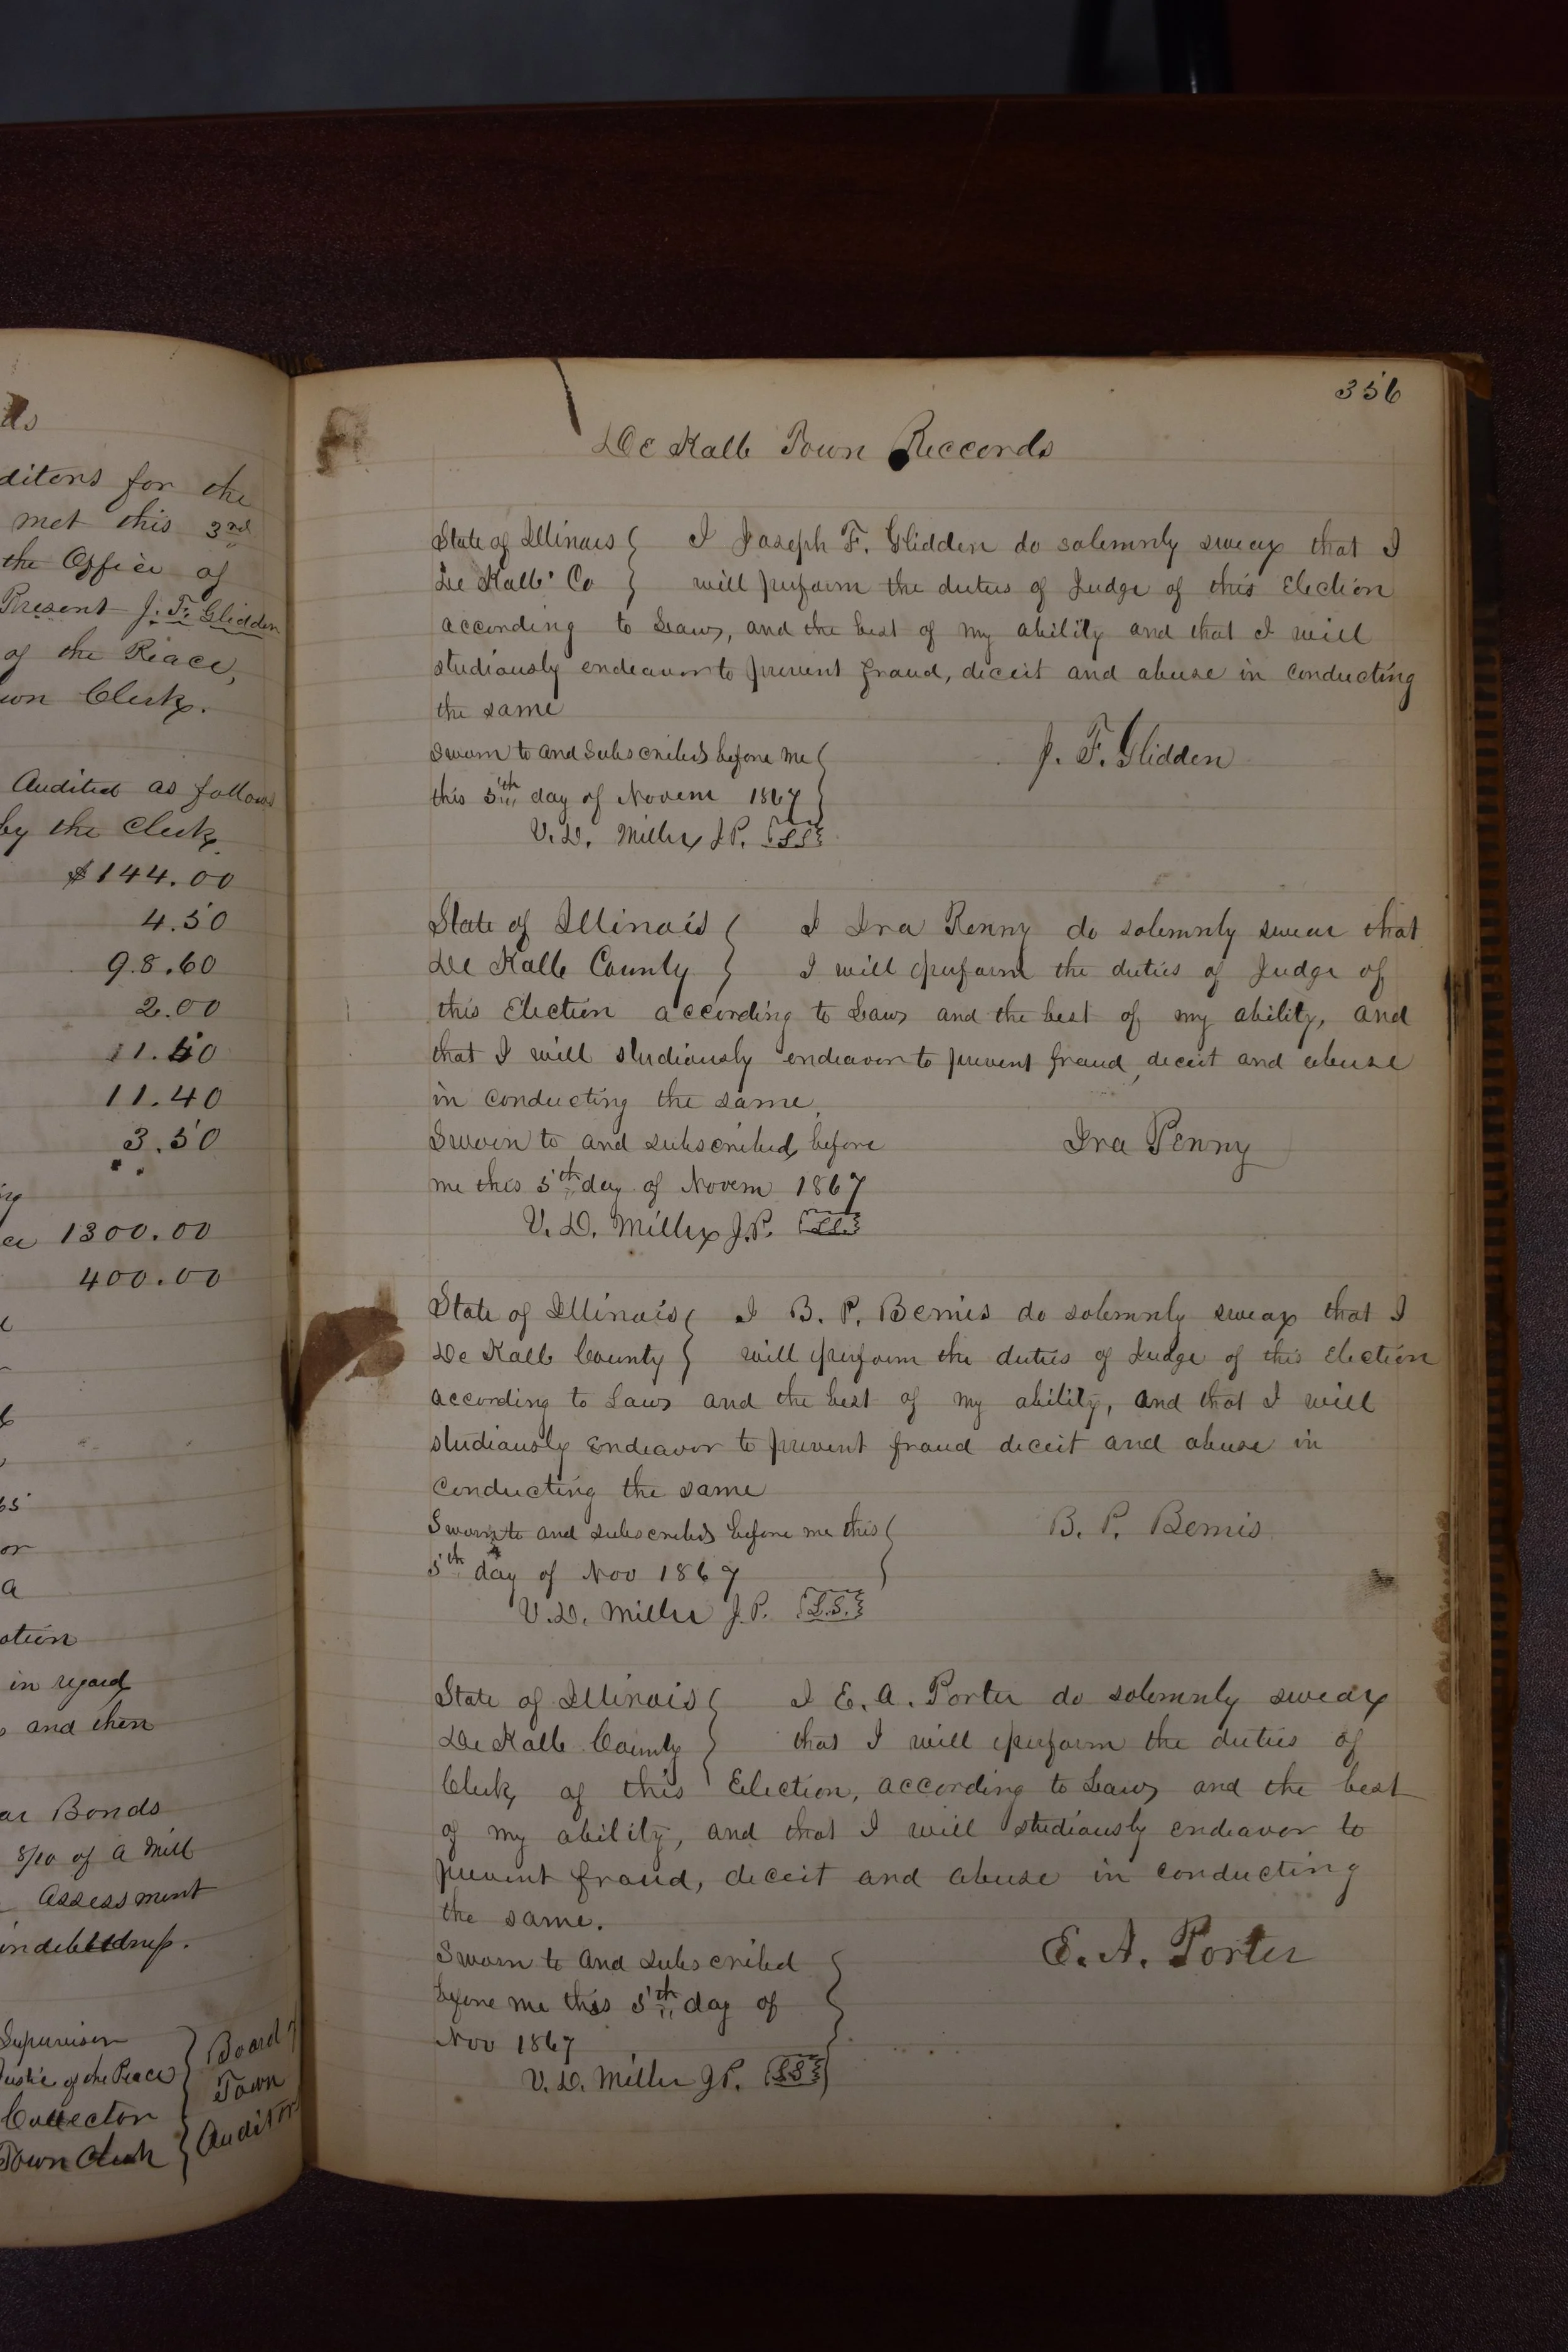 ds
ditors for the
met this 3rd
the Office of
Present J. F. Glidden
of the Peace,
own Clerk.
Audited as follows
by the Clerk
$144.00
4.50
98.60
2.00
11.50
11.40
3.50
1300.00
400.00
or
a
ation
in regard
and then
Bonds
8/10 of a Mill
assessment
indebtedness.
Supervisor
Justice of the Peace
Collector
Town Clerk
Board of
Town
Auditors
356
De Kalb Town Reccords
State of Illinois } I Joseph F. Glidden do solemnly swear that I
De Kalb Co } will perform the duties of Judge of this Election
according to Law, and the best of my ability and that I will
studiously endeavor to prevent fraud, deceit and abuse in conducting
the same
Sworn to and Subscribed before me
this 5th day of Novem 1867
J. F. Glidden
V. D. Miller J.P. L.S.
State of Illinois } I Ira Penny do solemnly swear that
De Kalb County } I will perform the duties of Judge of
this Election according to Law and the best of my ability, and
that I will studiously endeavor to prevent fraud, deceit and abuse
in conducting the same.
Sworn to and subscribed before
Ira Penny
me this 5th day of Novem 1867
V. D. Miller J.P. L.S.
State of Illinois } I B. P. Bemis do solemnly swear that I
De Kalb County } will perform the duties of Judge of this Election
according to Law and the best of my ability, and that I will
studiously endeavor to prevent fraud deceit and abuse in
conducting the same
Sworn to and subscribed before me this
B. P. Bemis
5th day of Nov 1867
V. D. Miller J.P. L.S.
State of Illinois } I E. A. Porter do solemnly swear
De Kalb County } that I will perform the duties of
Clerk of this Election, according to Law and the best
of my ability, and that I will studiously endeavor to
prevent fraud, deceit and abuse in conducting
the same.
E. A. Porter
Sworn to and subscribed
before me this 5th day of
Nov 1867
V. D. Miller J.P. L.S.